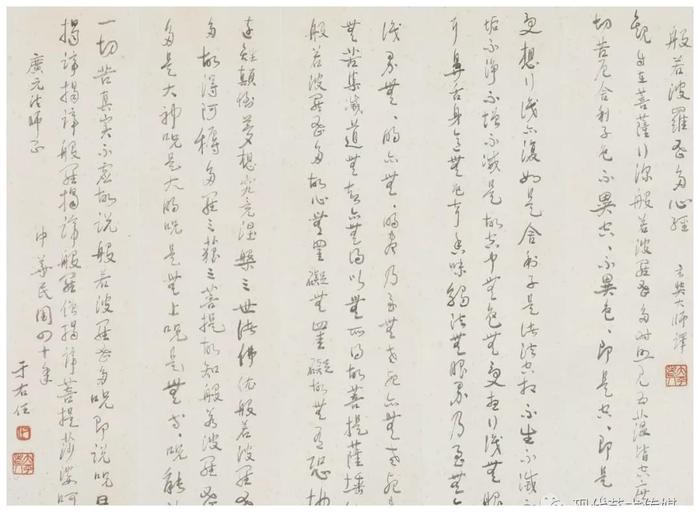 般若波羅蜜多心經 玄奘大師譯
觀自在菩薩行深般若波羅蜜多時照見五蘊皆空度
切苦厄舍利子色不異空、不異色、即是空、即是
受想行識亦復如是舍利子是諸法空相不生不滅
垢不淨不增不減是故空中無色無受想行識無眼
耳鼻舌身意無色聲香味觸法無眼界乃至無意
識界無、明亦無、明盡乃至無老死亦無老死
無苦集滅道無智亦無得以無所得故菩提薩埵
般若波羅蜜多故心無罣礙無罣礙故無有恐怖
遠離顛倒夢想究竟涅槃三世諸佛依般若波羅蜜
多故得阿耨多羅三藐三菩提故知般若波羅蜜
多是大神咒是大明咒是無上咒是無等、咒能
一切苦真實不虛故說般若波羅蜜多咒即說咒曰
揭諦揭諦般羅揭諦般羅僧揭諦菩提莎婆呵
廣元法師正
中華民國四十年
于右任